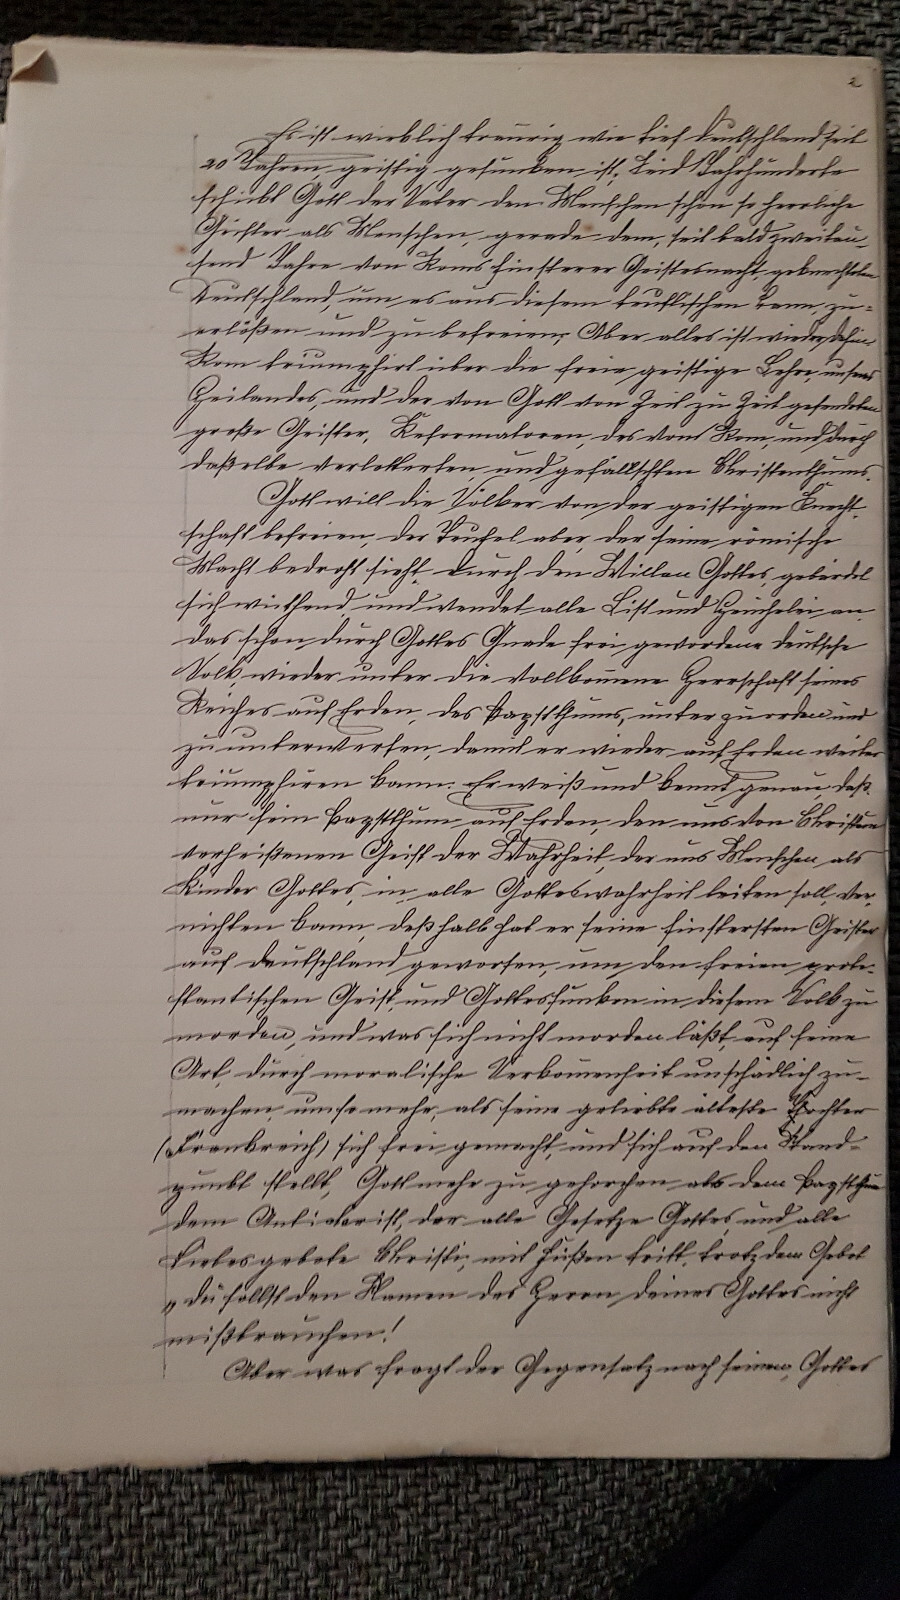 2
Es ist wirklich traurig wie tief Deutschland seit
20 Jahren, geistig gesunken ist, Seid Jahrhunderte
schickt Gott der Vater den Menschen schon so herrliche
Geister als Menschen, gerade dem, seit bald zweitau-
send Jahre von Roms finsterer Geistesnacht, geknechteten
Deutschland, um es aus diesem teuflischen Bann, zu-
erlößen und zu befreien; Aber alles ist wieder dahin
Rom triumphirt über die freie geistige Lehre, unseres
Heilandes, und der von Gott von Zeit zu Zeit gesendeten
große Geister, Reformatoren, des vom Rom, und durch
daßelbe verketzerten, und gefälschten Christenthums.
Gott will die Völker von der geistigen Knecht-
schaft befreien, der Teufel aber, der seine, römische
Macht bedroht sieht, durch den Willen Gottes, gebärdet
sich wüthend und wendet alle List und Heuchelei an,
das schon durch Gottes Gnade frei gewordene deutsche
Volk, wieder unter die vollkomene Herrschaft seines
Reiches auf Erden, des Papstthums, unter zu orden und
zu unterwerfen, damit er wieder auf Erden weiter
triumphiren kann. Er weiß und kennt genau, daß
nur sein Papstthum auf Erden, den uns von Christum
verheißenen Geist der Wahrheit, der uns Menschen als
Kinder Gottes, in alle Gotteswahrheit leiten soll, ver-
nichten kann, deßhalb hat er seine finstersten Geister
auf Deutschland geworfen, um den freien prote-
stantischen Geist, und Gottesfunken in diesem Volk zu
morden, und was sich nicht morden läßt, auf seine
Art, durch moralische Verkomenheit unschädlich zu-
machen, umso mehr, als seine geliebte älteste Tochter
(Frankreich) sich frei gemacht, und sich auf den Stand-
punkt stellt, Gott mehr zu gehorchen als dem Papstthum
dem Antichrist, der alle Gesetze Gottes, und alle
Liebesgebote Christi, mit Füßen tritt, trotz dem Gebot
„du sollst den Namen des Herrn deines Gottes nicht
mißbrauchen!
Aber was fragt der Gegensatz nach seinem Gottes